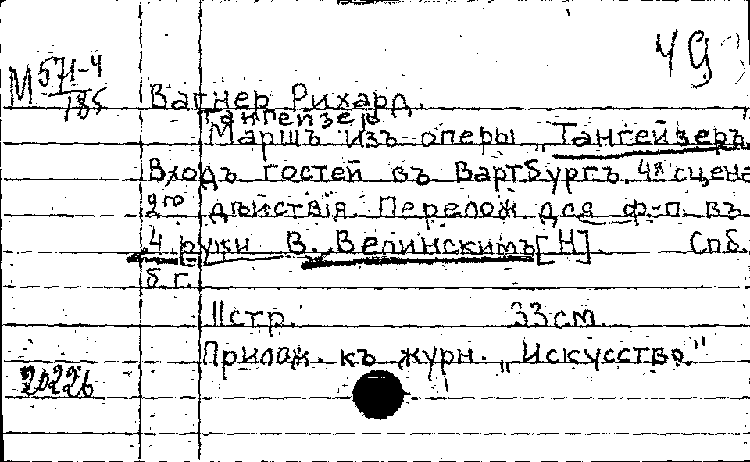 49
М 571-4
185
Вагнер Рихард.
Тангейзер
Маршъ изъ оперы „Тангейзеръ
Входъ гостей въ Вартбургъ. 4я сцена
2го дѣйствія. Перелож. для ф-п. въ
4 руки В. Велинскимъ [Н] Спб.
б. г.
11 стр. 33 см.
Прилож. къ журн. „Искусство."
20226